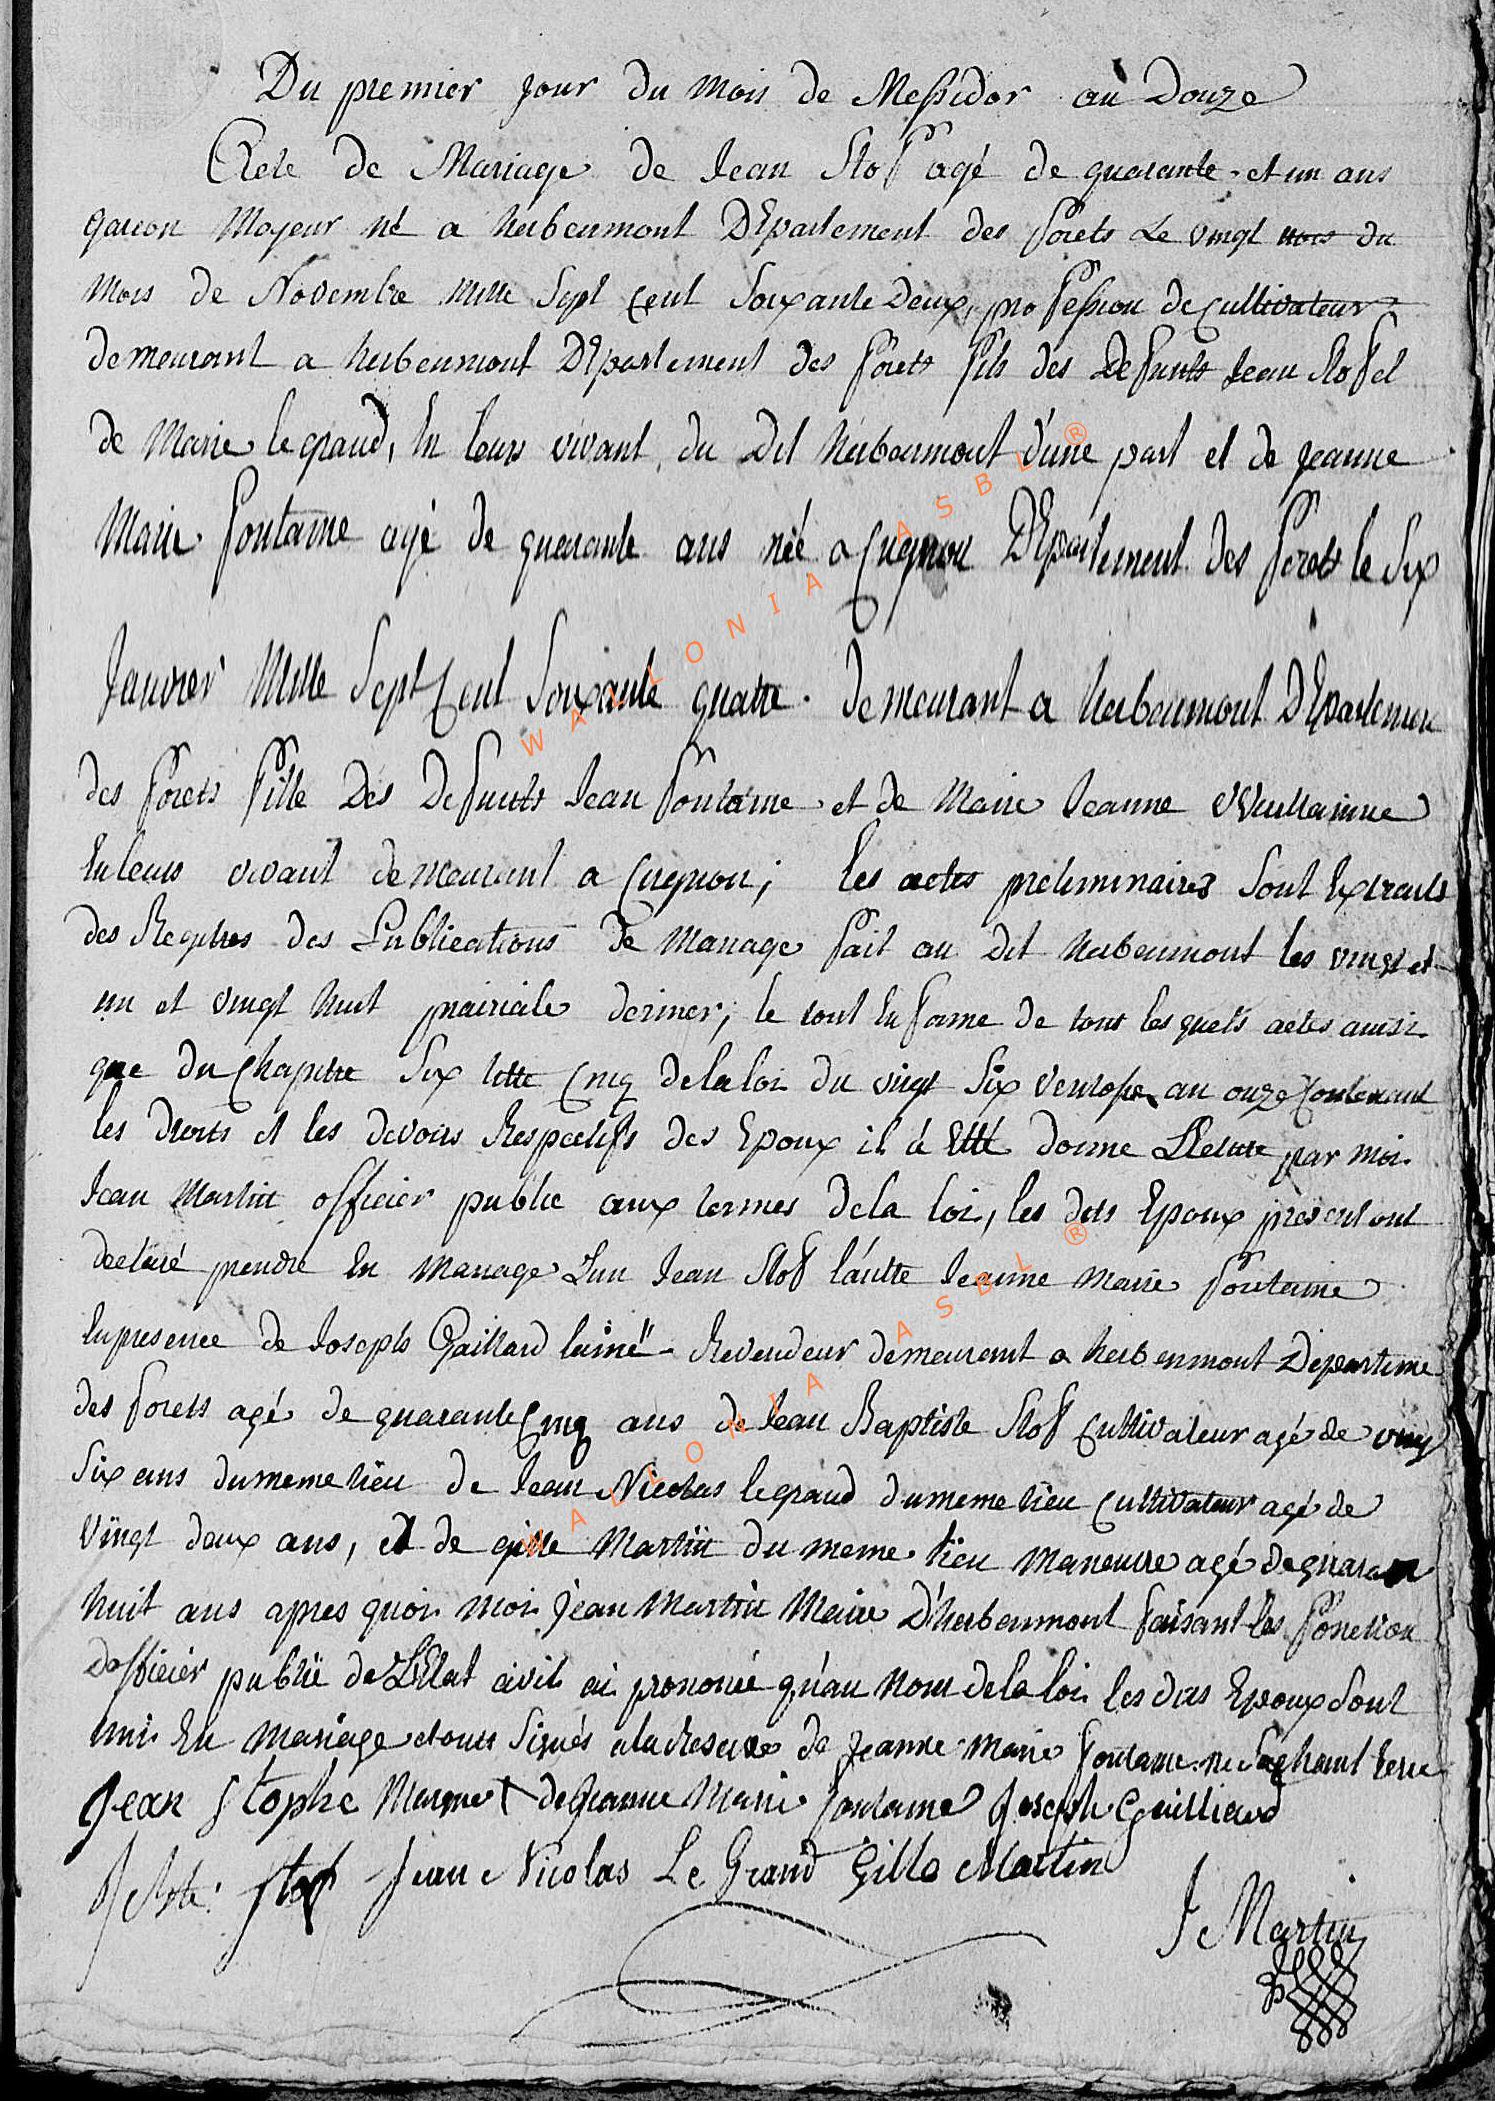 Du premier jour du mois de Messidor an Douze
Acte de Mariage de Jean Stof agé de quarante et un ans
garcon Majeur né a herbeumont DEpartement des forets Le vingt du
Mois de Novembre Mille Sept Cent Soixante Deux, profession de Cultivateur
demeurant a herbeumont DEpartement des forets fils des Defunts Jean Stofel
de Marie legrand, En leurs vivant du Dit herbeumont d'une part et de Jeanne
Marie fontaine agé de quarante ans née a Cugnon DEpartement des forets le Six
Janvier Mille Sept Cent Soixante quatre. demeurant a herbeumont DEpartemen
des forets fille Des Defunts Jean fontaine et de Marie Jeanne
En leurs vivant demeurant a Cugnon; les actes preliminaires Sont Extraits
des Regitres des Publications de Mariage fait au Dit herbeumont les vingt et
un et vingt huit prairiale dernier; le tout En forme de tout les quels actes ainsi
que du Chapitre Six titre Cinq de la loi du vingt Six ventose an onze Contenant
les droits et les devoirs Respectifs des Epoux il á Etté donne Lecture par moi
Jean Martin officier public aux termes de la loi, les dits Epoux present ont
declaré prendre En Mariage Lun Jean Stof láutre Jeanne Marie fontaine
En presence de Joseph Gaillard lainé Revendeur demeurant a herbeumont Departeme
des forets agé de quarante Cinq ans de Jean Baptiste Stof Cultivateur agé de ving
Six ans du meme lieu de Jean Nicolas legrand du meme lieu Cultivateur agé de
Vingt deux ans, et de gille Martin du meme lieu Maneuvre agé de
huit ans apres quoi moi Jean Martin Maire D'herbeumont faisant les fonction
dofficier public de LEtat civil ai prononcé qu'au Nom de la loi les dits Epoux Sont
uni En Mariage et ont Signés a la Reserve de Jeanne Marie fontaine ne Sachant
Jean Stophe Marque + de Jeanne Marie fontaine Joseph Gailliard
J Bte: Stof Jean Nicolas Le Grand Gille Martin
J Martin
WALLONIA ASBL ®
WALLONIA ASBL ®